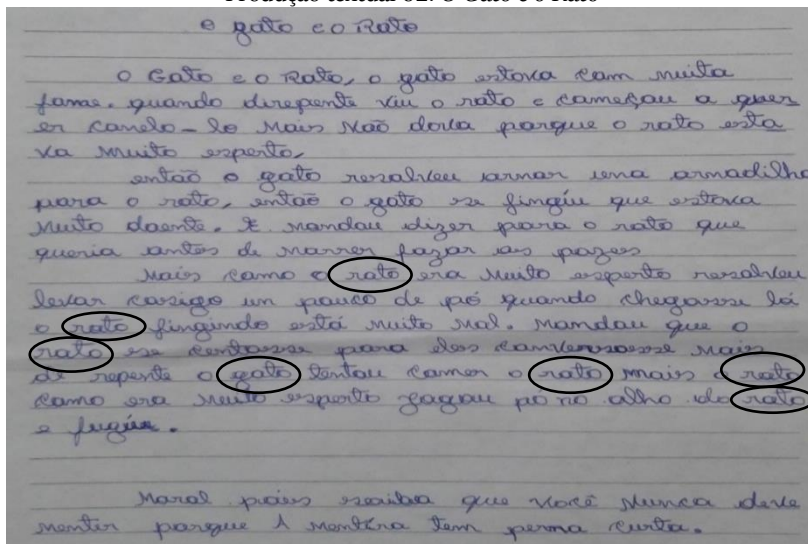 o gato e o Rato
O Gato e o Rato, o gato estova com muita
fame. quando direpente viu o rato e começou a quer
er comelo-lo Mais Não dova porque o rato esta
va muito esperto,
então o gato resolveu armar uma armadilha
para o rato, então o gato se fingiu que estova
Muito doente. E mandou dizer para o rato que
queria antes de morrer fazar as pazes
Mais como o rato era Muito esperto resolveu
levar cosigo um pouco de pó quando chegasse lá
o rato fingindo está muito mal. Mandou que o
rato se sentasse para eles comversosse mais
de repente o gato tentou comer o rato mais o rato
como era Muito esperto jagou pó no olho do rato
e fugiu.
Maral pois que você Nunca deve
mentir porque A mentira tem perma curta.